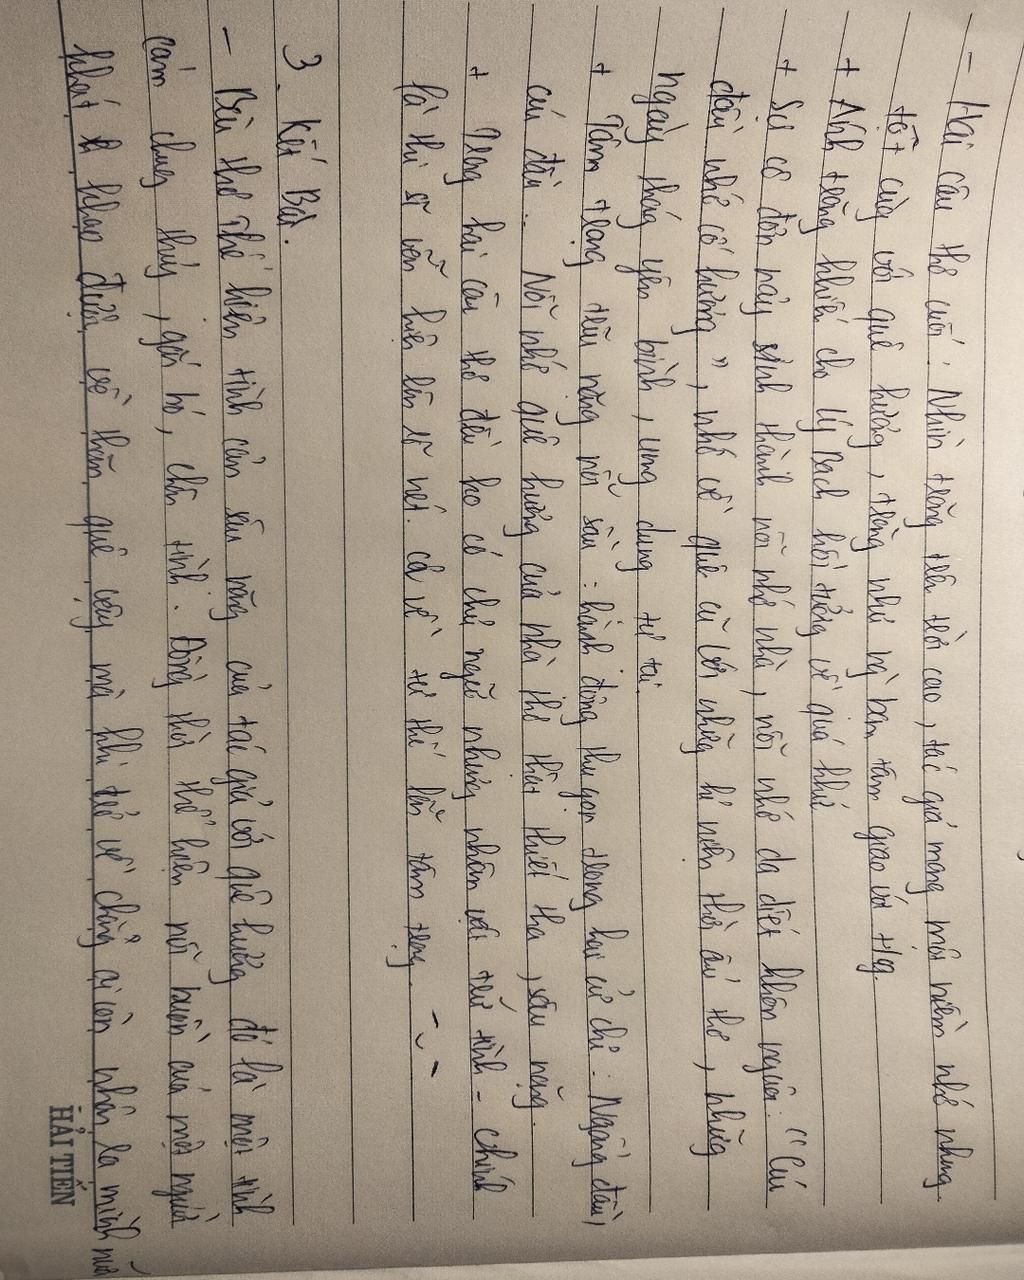 - Hai câu thơ cuối: Nhìn trăng trên trời cao, tác giả mang một niềm nhớ nhung
tột cùng với quê hương, trăng như ng bạn tâm giao với t/g.
+ Ánh trăng khiến cho Lý Bạch hồi tưởng về quá khứ
+ Sự cô đơn nảy sinh thành nỗi nhớ nhà, nỗi nhớ da diết khôn nguôi: "Cúi
đầu nhớ cố hương", nhớ về quê cũ với những kỉ niệm thời ấu thơ, những
ngày tháng yên bình, ung dung tự tại.
+ Tâm trạng trĩu nặng nỗi sầu: hành động thu gọn trong hai cử chỉ: Ngẩng đầu,
cúi đầu. Nỗi nhớ quê hương của nhà thơ thật thiết tha, sâu nặng.
+ Trong hai câu thơ đều ko có chủ ngữ nhưng nhân vật trữ tình - chính
là thi sĩ vẫn hiện lên rõ nét. cả về tư thế lẫn tâm trạng.
3. Kết Bài.
- Bài thơ thể hiện tình cảm sâu nặng của tác giả với quê hương đó là một tình
cảm chung thủy, gắn bó, chân tình. Đồng thời thể hiện nỗi buồn của một người
khát khao được về thăm quê vậy mà khi trở về chẳng ai còn nhận ra mình nữa
HẢI TIẾN